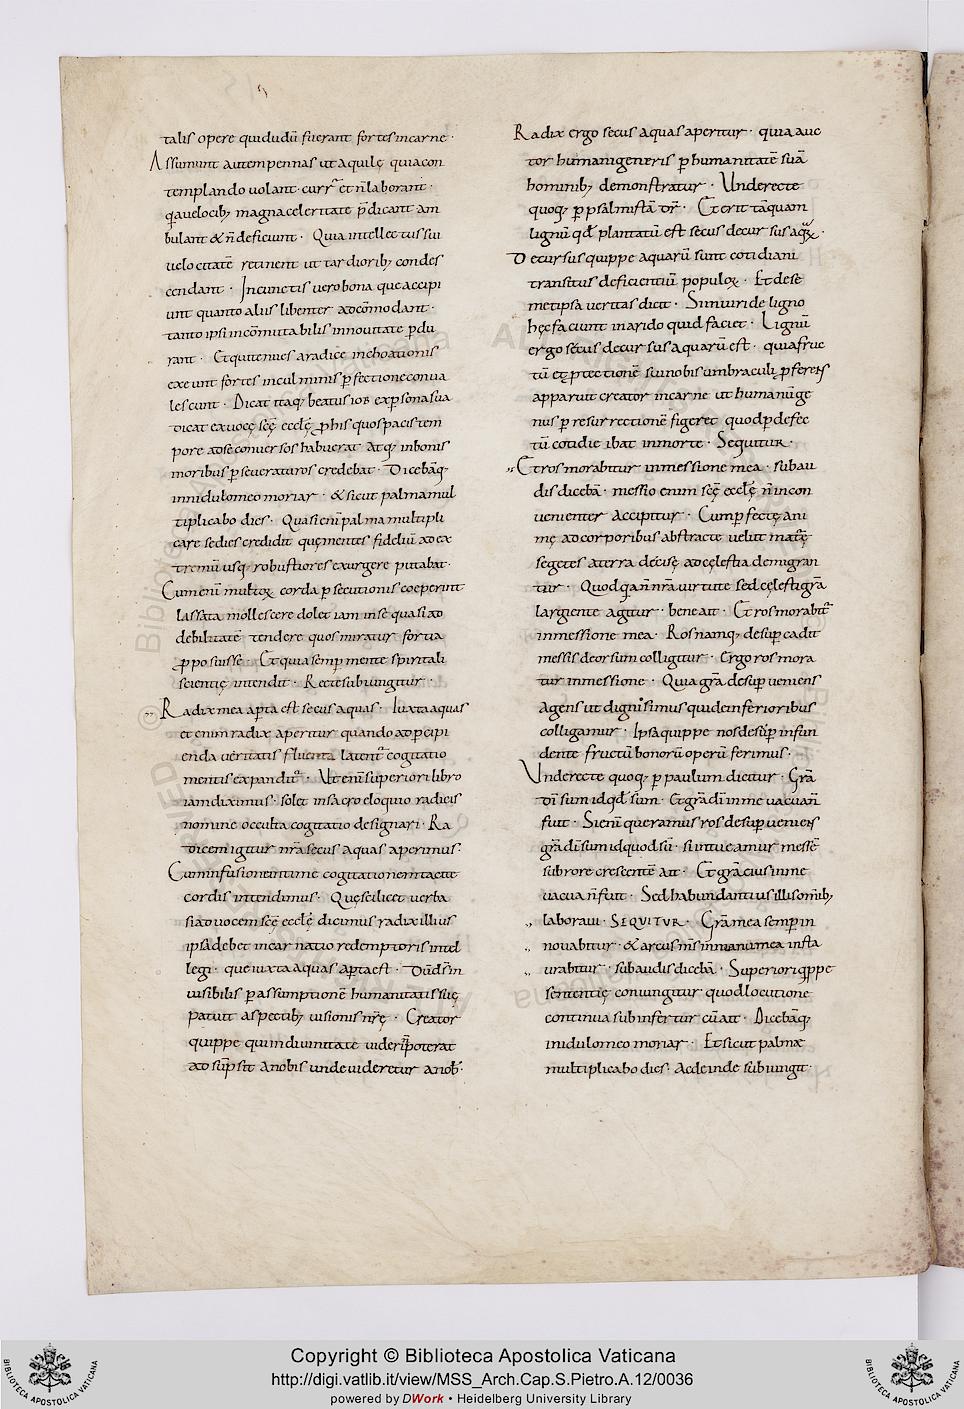 talis opere qui dudū fuerant fortes in carne ·
Assumunt autem pennas ut aquilę quia con
templando uolant · curr̄ et n̄ laborant ·
q̄a uelocib; magna celeritate p̄dicant am
bulant & n̄ deficiunt · Quia intellectus sui
uelocitatē retinent ut tardiorib; condes
cendant · In cunctis uero bona que accipi
unt quanto aliis libenter adcōmodant ·
tanto ipsi incōmutabilis in nouitate p̄du
rant · Et qui tenues a radice inchoationis
exeunt fortes in culminis p̄fectione conua
lescunt · Dicat itaq; beatus iob ex persona sua
dicat ex uocę scę̄ ecclę̄ p̄ his quos pacis tem
pore ad se conuersos habuerat Atq; in bonis
moribus p̄seueraturos credebat · Dicebāq;
in nidulo meo moriar · & sicut palma mul
tiplicabo dies · Quasi eni palma multipli
care se dies credidit quę mentes fideliū ad ex
tremū usq; robustiores exurgere putabat ·
Cum eni multoꝝ corda p̄secutionis coeperint
lassata mollescere dolet iam in se quasi ad
debilitatē tendere quos miratur fortia
p̄posuisse · Et quia semp̄ mente spiritali
scientię intendit · Recte subiungitur ·
„ Radix mea ap̄ta est secus aquas · Iuxta aquas
et enim radix aperitur quando ad p̄cipi
enda ueritatis fluenta latent̄ cogitatio
mentis expandit̄ · Ut eni superiori libro
iam diximus · solet in sacro eloquio radicis
nomine occulta cogitatio designari · Ra
dicem igitur nr̄a secus aquas aperimus ·
Cum infusionem intime cogitationem tacite
cordis intendimus · Quę scilicet uerba
si ad uocem scę̄ ecclę̄ dicimus radix illius
ipsa debet incarnatio redemptoris intel
legi · que iuxta aquas ap̄ta est · Dū dn̄s in
uisibilis p̄ assumptionē humanitatis suę
patuit aspectib; uisionis nr̄ę · Creator
quippe qui in diuinitate uideri n̄ poterat
ad sūpsit a nobis unde uideretur a nob̄ ·
Radix ergo secus aquas aperitur · quia auc
tor humani generis p̄ humanitatē suā
hominib; demonstratur · Unde recte
quoq; p̄ psalmistā dr̄ · Et erit tāquam
lignū qd̄ plantatū est secus decursus aquaꝝ ·
Decursus quippe aquarū sunt cotidiani
transitus deficientiū populoꝝ · Et de se
metipsa ueritas dicit · Si in uiride ligno
hęc faciunt in arido quid faciet · Lignū
ergo secus decursus aquarū est · quia fruc
tū et p̄tectionē sui nobis umbraculi p̄ferens
apparuit creator in carne ut humanū ge
nus p̄ resurrectionē figeret quod p̄ defec
tū cotidie ibat in morte · Sequitur ·
„ Et ros morabitur in messione mea · subau
dis dicebā · messio enim scę̄ ecclę̄ n̄ incon
uenienter Accipitur · Cum p̄fectę ani
mę ad corporibus abstracte uelut matᷓe
segetes a terra decisę ad cęlestia demigran
tur · Quod q̄a n̄ nr̄a uirtute sed cęlesti gr̄a
largiente agitur · bene ait · Et ros morabit̄
in messione mea · Ros namq; desup̄ cadit
messis deorsum colligitur · Ergo ros mora
tur in messione · Quia gr̄a desup̄ ueniens
Agens ut digni simus qui de inferioribus
colligamur · Ipsa quippe nos desup̄ infun
dente fructū bonorū operū ferimus ·
Unde recte quoq; p̄ paulum dicitur · Gr̄a
dī sum id qd̄ sum · Et gr̄a dī in me uacua n̄
fuit · Si eni queramus ros desup̄ ueniens
gr̄a dī sum id quod sū · si intueamur messē
sub rore crescentē ait · Et gr̄a eius in me
uacua n̄ fuit · Sed habundantius illis om̄ib;
„ laboraui · SEQUITUR · Gr̄a mea semp̄ in
„ nouabitur · & arcus m̄s in manu mea insta
„ urabitur · subaudis dicebā · Superiori q̄ppe
sententię coniungitur quod locutione
continua subinfertur cū ait · Dicebāq;
in nidulo meo moriar · Et sicut palmae
multiplicabo dies · Ac deinde subiungit ·
Copyright © Biblioteca Apostolica Vaticana
http://digi.vatlib.it/view/MSS_Arch.Cap.S.Pietro.A.12/0036
powered by DWork • Heidelberg University Library
BIBLIOTECA APOSTOLICA VATICANA
BIBLIOTECA APOSTOLICA VATICANA